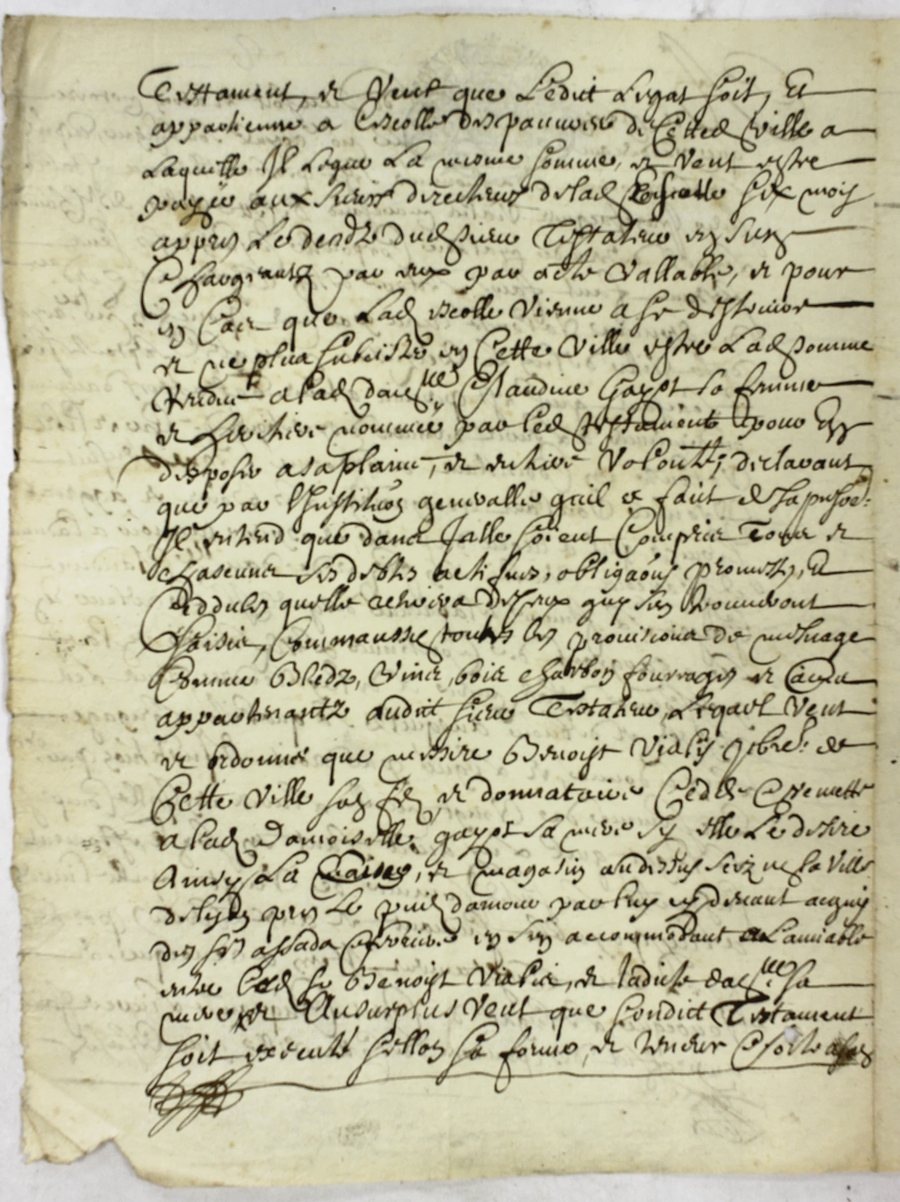 Testament, et Veut que Ledict Legat soit, Et
appartienne a Lescolle des pauvres de Cetted Ville a
Laquelle Il Legue La mesme somme, et Veut estre
payée aux sieurs directeurs delad Escolle six mois
appres Le decedz dudsieur Testateur en sen
Chargeantz par eux par acte Vallable, et pour
en Cas que Lad escolle Vienne a se destruire
et ne plus subcister en Cette Ville estre Ladsomme
Rendue alad dam.lle Claudine Gayot sa femme
et heritiere nommée par led testament pour En
disposer asaplaine, et entiere Volonté; declarant
que par Linstitution generalle quil a fait de sa
Il entend que dans Jcelle soient Compris Tous et
chascuns ses debtes actifves, obligaons promesses, Et
Ceddules quelle achevera deceux quy sen trouveront
Saisis, Comm'aussy toutes les provisions de mesnage
Comme Bledz, Vins, bois charbon fourrages et
appartenantz audict sieur Testateur, Lequel Veut
et ordonne que messire Benoist Vialis pbre. de
Cette Ville son filz et donnataire Cedde Et remette
a lad Damoiselle gayot sa mere sy elle Le desire
Ainsy La, et magasin audessus de la Ville
delyon pres Le puis damour par luy cydevant acquis
des srs assada en sen accommodant a Lamiable
entre led sr Benoist Vialis, et ladicte dam.lle sa
mere et Ausurplus Veut que sondict Testament
soit executé sellon sa forme, et teneur